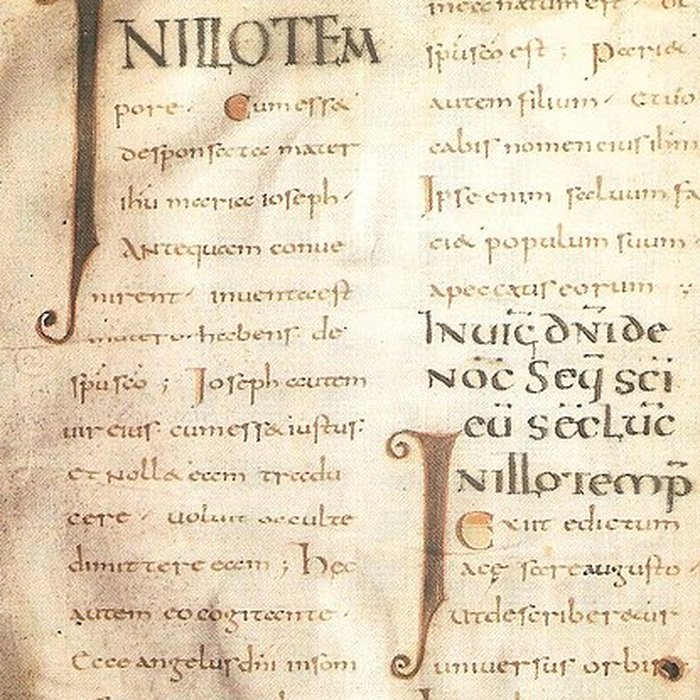 INILLOTEM
pore· Cumess&
desponsata mater
ihu maria ioseph·
Antequam conue
nirent· inuentaest
utero· habens de
spu sco ; Ioseph autem
uir eius· cumess& iustus·
et noll& eam tradu
cere· uoluit occulte
dimittere eam ; Hec
autem eo cogitante·
Ecce angelus dni insom
spu sco est ; pari&
autem filium·
cabis nomen eius ihm
Ipse enim saluum fa
ci& populum suum·
apeccatis eorum ;
IN UIG̅ DN̅I DE
NOC̅ SEQ̅ SCI̅
EU̅ SEC̅ LUC̅
INILLO TEMP̅
Exiit edictum
acę sare augusto
utdescriber&ur
uniuersus orbis